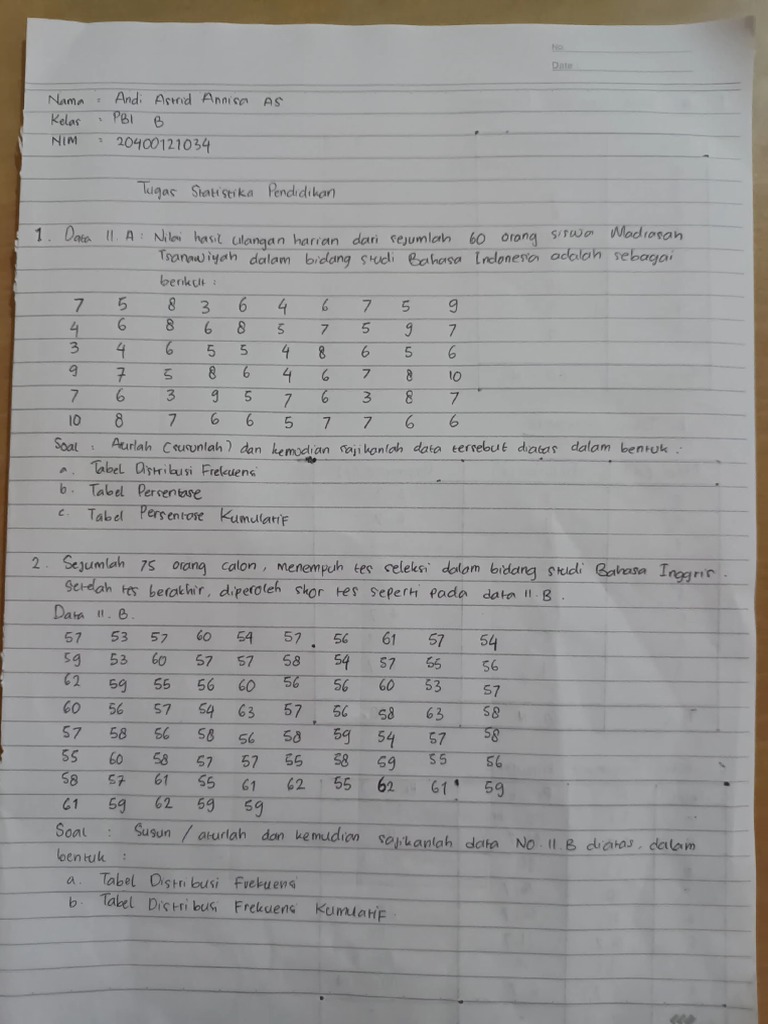 No
Date
Nama : Andi Astrid Annisa AS
Kelas : PBI B
NIM : 20400121034
Tugas Statistika Pendidikan
1. Data 11. A : Nilai hasil ulangan harian dari sejumlah 60 orang siswa Madrasah
Tsanawiyah dalam bidang studi Bahasa Indonesia adalah sebagai
berikut :
7 5 8 3 6 4 6 7 5 9
4 6 8 6 8 5 7 5 9 7
3 4 6 5 5 4 8 6 5 6
9 7 5 8 6 4 6 7 8 10
7 6 3 9 5 7 6 3 8 7
10 8 7 6 6 5 7 7 6 6
Soal : Aturlah (susunlah) dan kemudian sajikanlah data tersebut diatas dalam bentuk :
a. Tabel Distribusi Frekuensi
b. Tabel Persentase
c. Tabel Persentase Kumulatif
2. Sejumlah 75 orang calon, menempuh tes seleksi dalam bidang studi Bahasa Inggris.
Setelah tes berakhir, diperoleh skor tes seperti pada data 11. B.
Data 11. B.
57 53 57 60 54 57 56 61 57 54
59 53 60 57 57 58 54 57 55 56
62 59 55 56 60 56 56 60 53 57
60 56 57 54 63 57 56 58 63 58
57 58 56 58 56 58 59 54 57 58
55 60 58 57 57 55 58 59 55 56
58 57 61 55 61 62 55 62 61 59
61 59 62 59 59
Soal : Susun / aturlah dan kemudian sajikanlah data No. 11. B diatas, dalam
bentuk :
a. Tabel Distribusi Frekuensi
b. Tabel Distribusi Frekuensi Kumulatif.